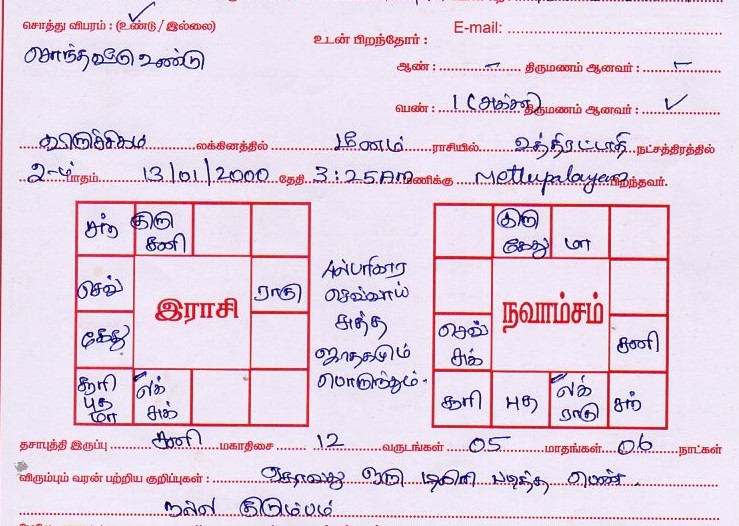 சொத்து விபரம் : (உண்டு / இல்லை) E-mail:
சொந்த வீடு உண்டு உடன் பிறந்தோர் :
ஆண் : – திருமணம் ஆனவர் : –
பெண் : 1 (அக்கா) திருமணம் ஆனவர் : ✓
விருச்சிகம் லக்கினத்தில் மீனம் ராசியில் உத்திரட்டாதி நட்சத்திரத்தில்
2-ம் பாதம் 13/01/2000 தேதி 3:25 AM மணிக்கு Mettupalayam பிறந்தவர்.
சந் குரு சனி
செவ் ராகு
இராசி
கேது
சூரி புத மா லக் சுக்
செவ்வாய்
சுத்த
ஜாதகமும்
பொருந்தும்.
குரு கேது மா
நவாம்சம்
செவ் சுக் சனி
சூரி புத லக் ராகு சந்
தசாபுத்தி இருப்பு சனி மகாதிசை 12 வருடங்கள் 05 மாதங்கள் 06 நாட்கள்
விரும்பும் வரன் பற்றிய குறிப்புகள் : ஏதாவது ஒரு டிகிரி படித்த பெண்.
நல்ல குடும்பம்